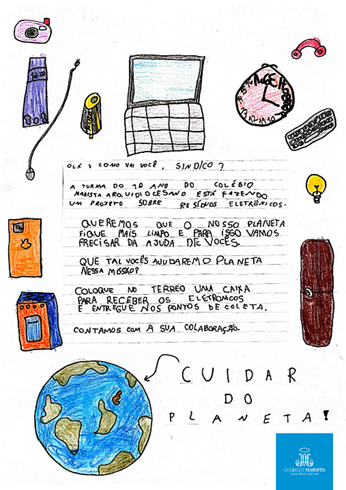 OLÁ, COMO VAI VOCÊ, SÍNDICO?
A TURMA DO 1º ANO DO COLÉGIO
MARISTA ARQUIDIOCESANO ESTÁ FAZENDO
UM PROJETO SOBRE RESÍDUOS ELETRÔNICOS.
QUEREMOS QUE O NOSSO PLANETA
FIQUE MAIS LIMPO E PARA ISSO VAMOS
PRECISAR DA AJUDA DE VOCÊS.
QUE TAL VOCÊS AJUDAREM O PLANETA
NESSA MISSÃO?
COLOQUE NO TERREO UMA CAIXA
PARA RECEBER OS ELETRONICOS
E ENTREGUE NOS PONTOS DE COLETA.
CONTAMOS COM A SUA COLABORAÇÃO.
CUIDAR
DO
PLANETA!
COLÉGIO MARISTA